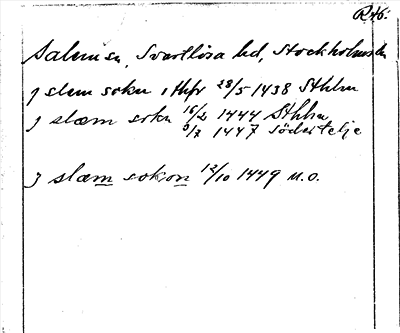 R46:
Salem sn, Svartlösa hd, Stockholms län
j slem sokn i thfr 28/5 1438 Sthlm
j slæm sokn 16/2 1444 Sthlm
9/7 1447 Södertelje
j slæm sokon 12/10 1449 u.o.